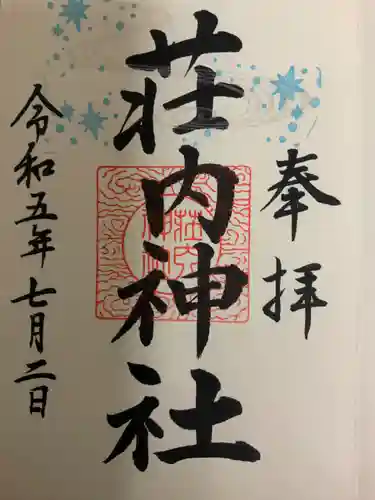 奉拝
荘内神社
令和五年七月二日